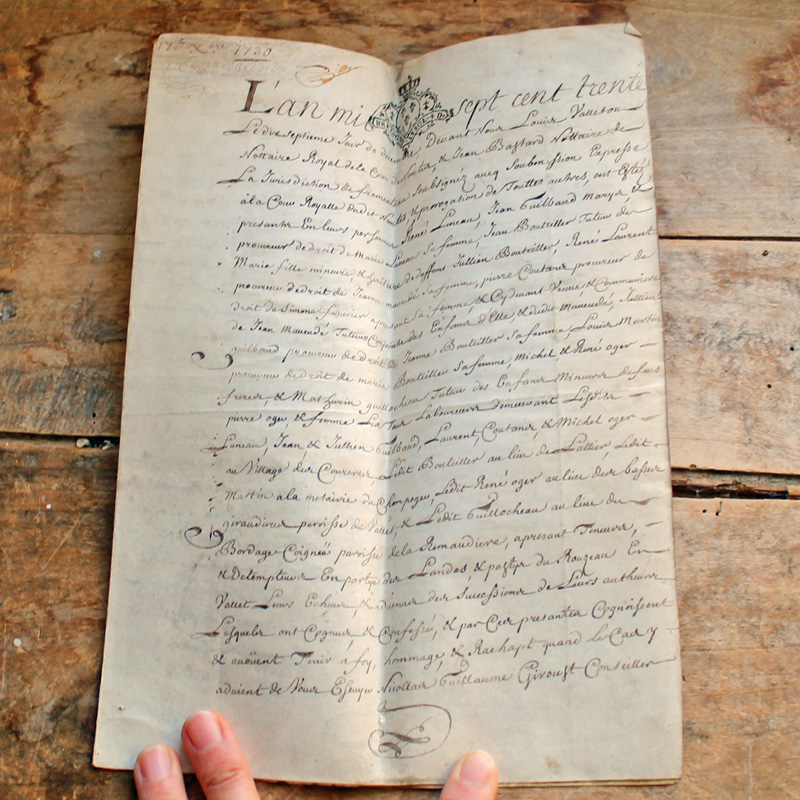 1730
L'an mil sept cent trente
Le dix septieme Jour de devant Nous Louis Valleton
Nottaire Royal de la Cour de Nantes, & Jean Bastard Nottaire de
La Jurisdiction de soubsignez avecq Soubmission Expresse
à la Cour Royalle dudit Nantes & prorogation de Touttes autres, ont Estez
presants En leurs personnes René Luneau, Jean Guilbaud mary &
procureur de droit de Marie Luneau Sa femme, Jean Bouteiller Tuteur de
Marie fille mineure & de deffunt Jullien Boutteiller, René Laurent
procureur de droit de Jeanne Sa femme, pierre Coutans procureur de
droit de Simone Sa femme, & Veuve & Communiere
de Jean Maneudé Tuteur des Enfans d'Elle, & dudit Maneudé, Jullien
guilbaud procureur de droit de Jeanne Boutteiller Sa femme, Louis Martin
procureur de droit de marie Boutteiller Sa femme, michel & René oger
freres, & Mathurin guillocheau Tuteur des Enfans Mineurs de fans
pierre oger, & femme Laboureurs demeurant Lesdits
Luneau, Jean, & Jullien Guilbaud, Laurent, Coutans, & Michel oger
au Village des Ledit Boutteiller au lieu de Lattier, Ledit
Martin a la metairie du Champeger, Ledit René oger au lieu des basses
giraudieres parroisse de Vallet, & Ledit Guillocheau au lieu du
Bordage Coigneü parroisse de la Remaudiere, apresant Teneurs,
& Detempteurs En partye des Landes, & pastys du Rouzeau En
Vallet Leurs Echeues, & advenues des Successions de Leurs autheurs
Lesquels ont Cognus, & Confessé, & par Ces presantes Cognoissent
& avoüent Tenir a foy, hommage, & Rachapt quand le Cas y
advient de Nous Escuyer Nicollas Guillaume Giroust Conseiller